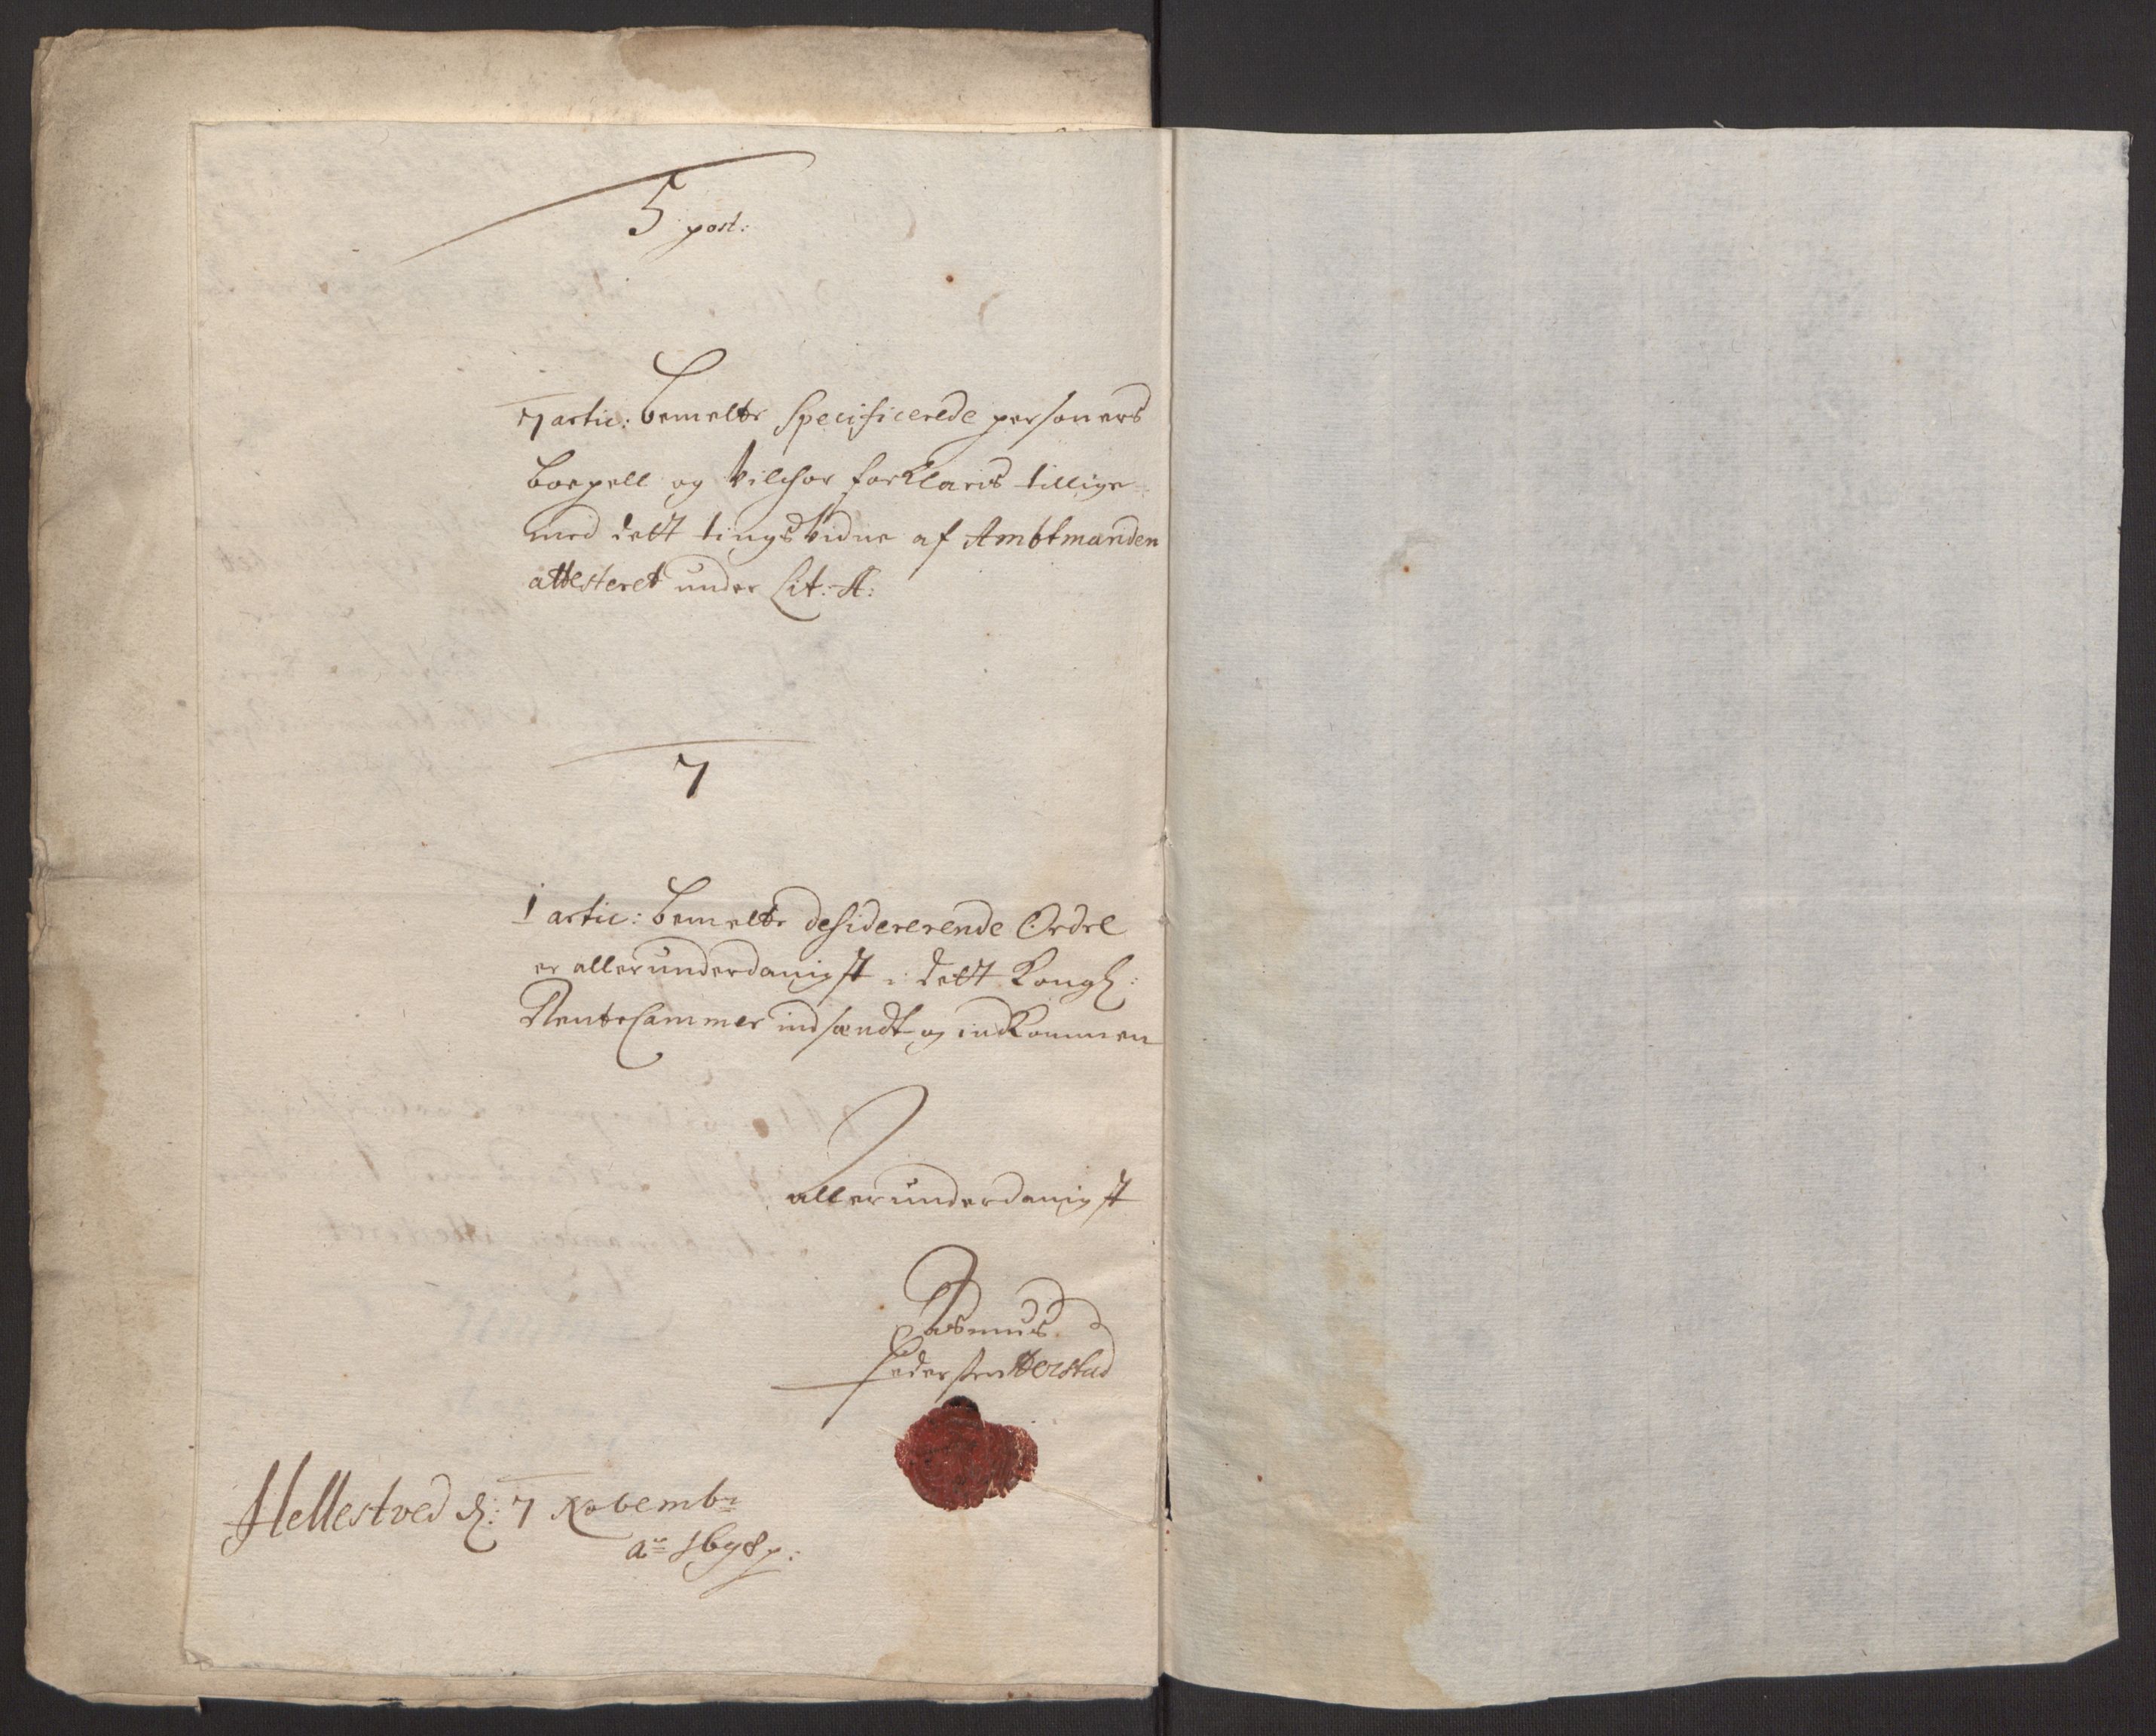 5 post:
7 artic: bemelte Specificerede personers
boepell og vilchor forklaris tillige
med dett tingsvidne af Ambtmanden
attesteret under Lit: A:
7
1 artic: bemelte desidererende Ordre
er allerunderdanigst i dett Kongl:
Rentecammer indsændt og indkommen
allerunderdanigst
Rasmus
Pedersen
Hellestved d: 7 Novembr
ao 1698